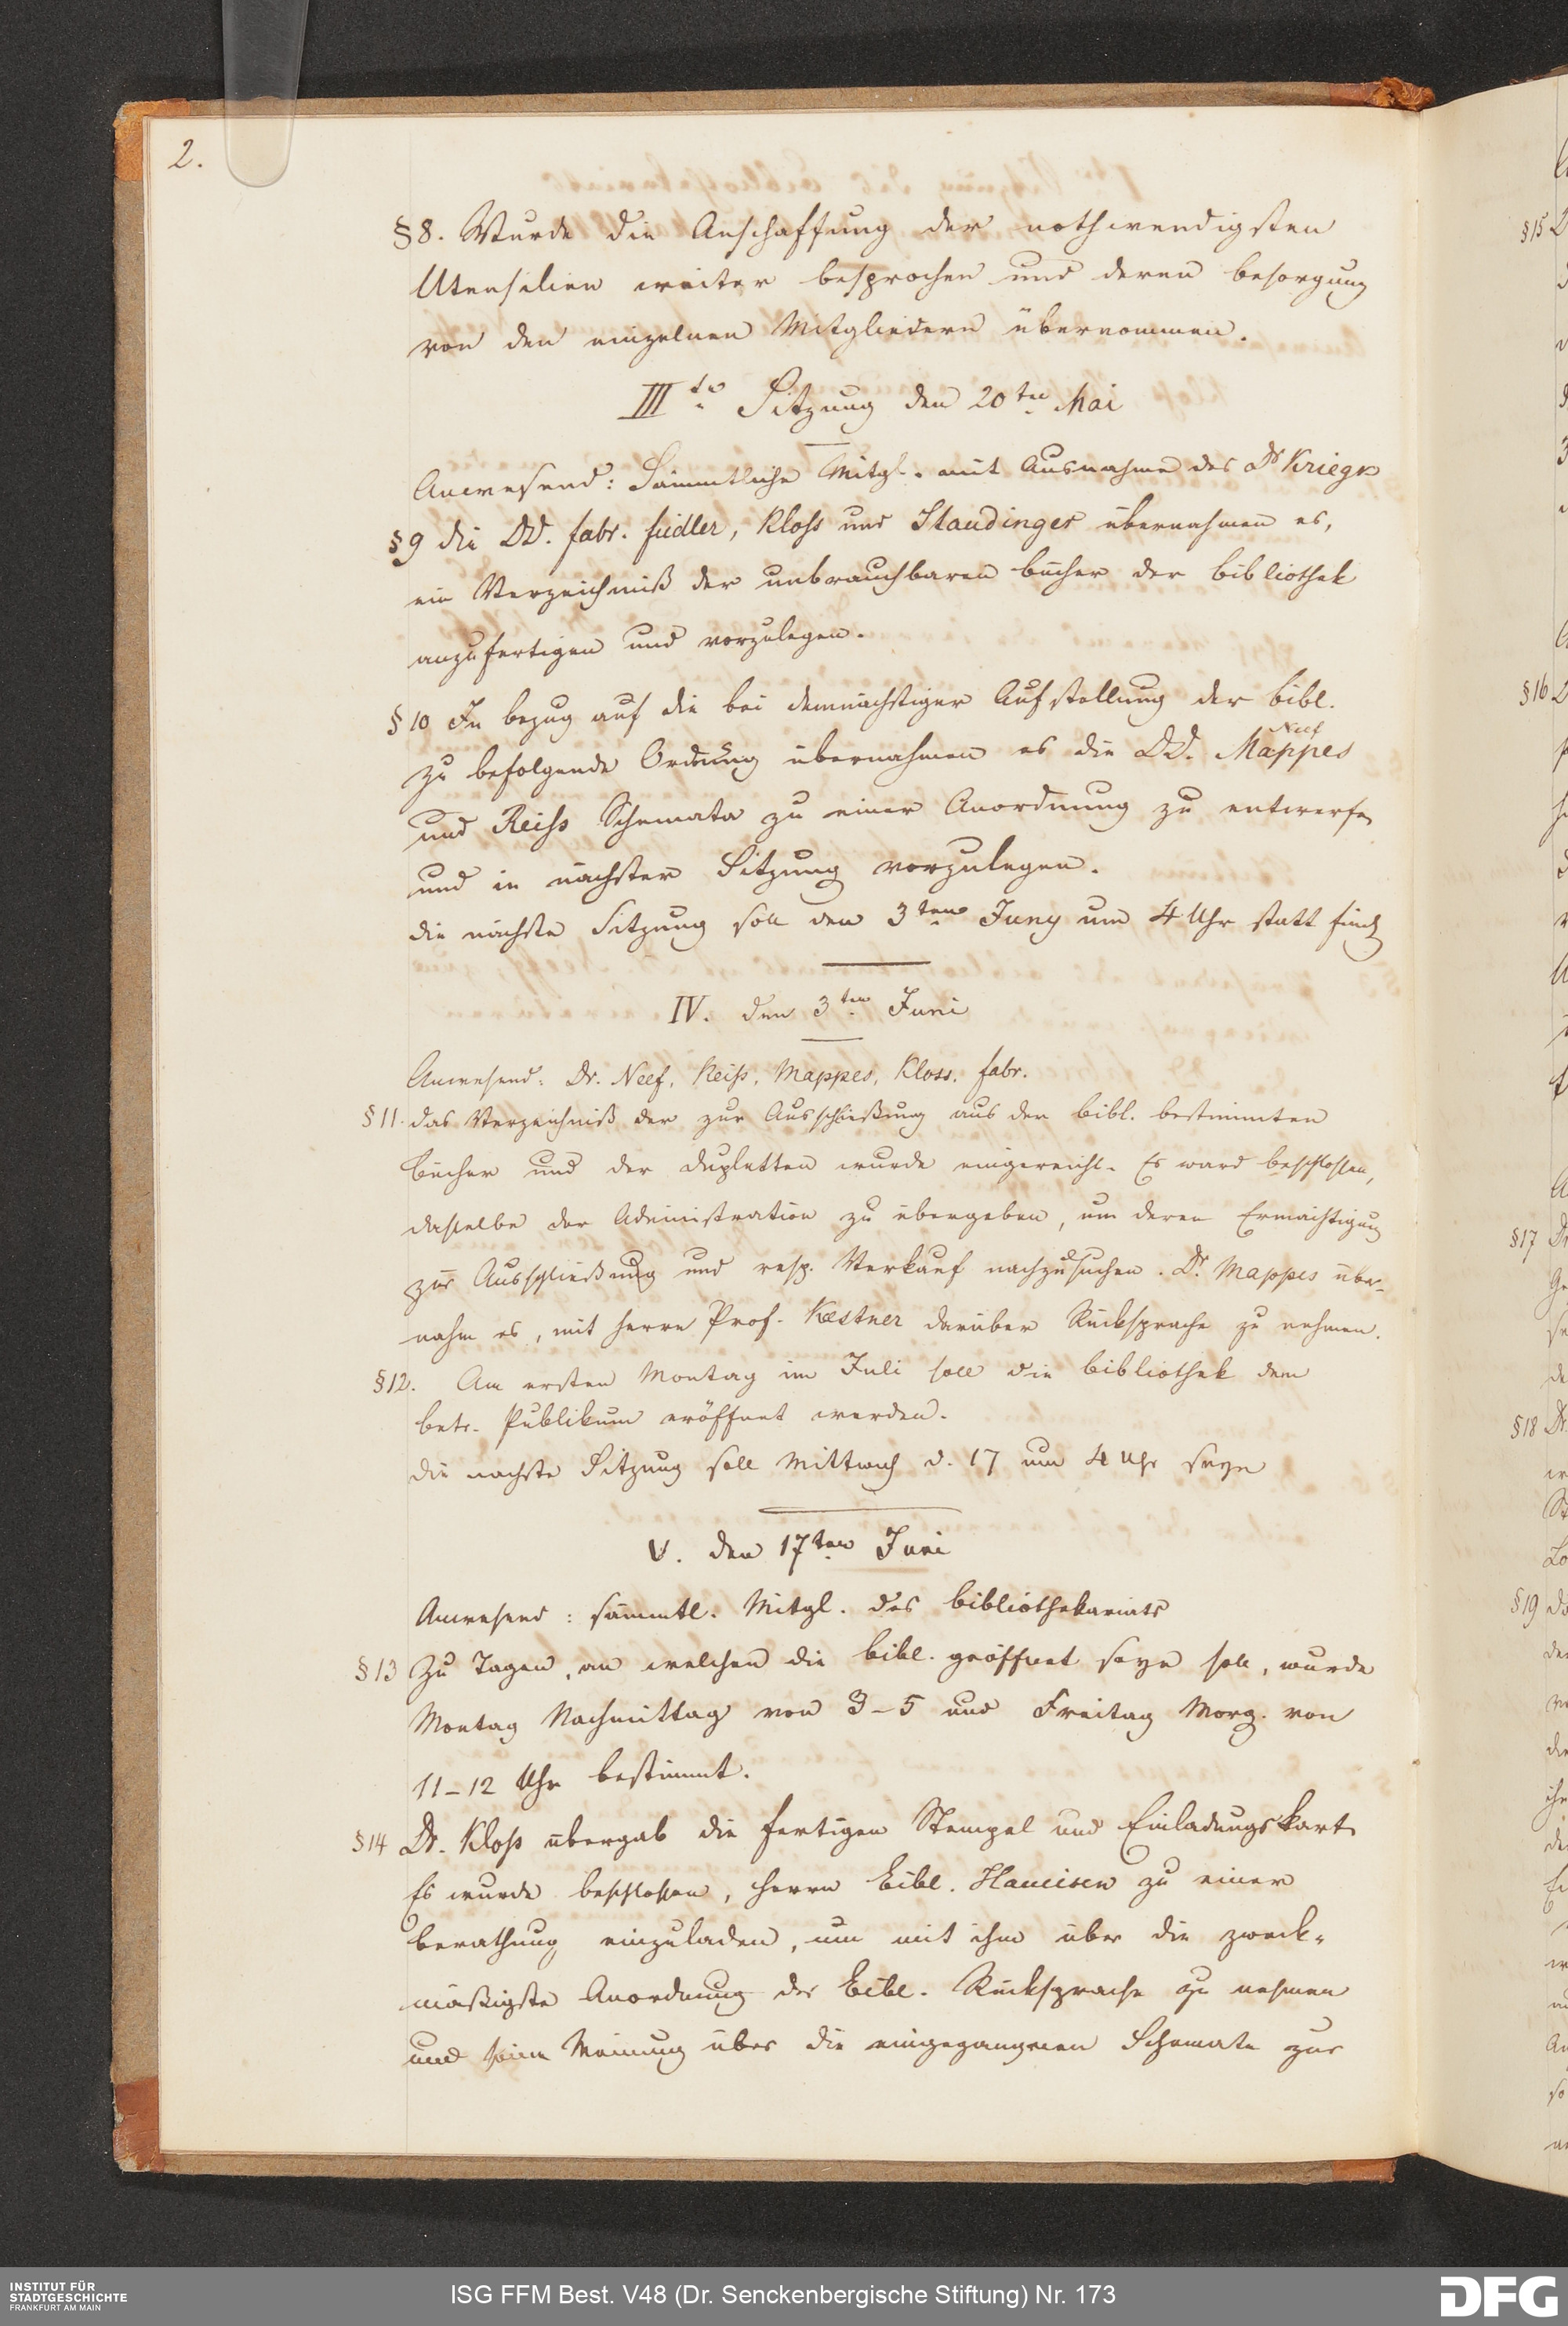 2.
§8. Wurde die Anschaffung der nothwendigsten
Utensilien weiter besprochen und deren besorgung
von den einzelnen Mitgliedern übernommen.
IIIte Sitzung den 20ten Mai
Anwesend: Sämmtliche Mitgl. mit Ausnahme des Dr Kriegk
§9 die DD. fabr. fiedler, Kloss und Staudinger übernahmen es,
ein Verzeichniß der unbrauchbaren bücher der bibliothek
anzufertigen und vorzulegen.
§10 In bezug auf die bei demnächstiger Aufstellung der bibl.
Neef
zu befolgende Ordnung übernahmen es die DD. Mappes
und Reiss Schemata zu einer Anordnung zu entwerfen
und in nächster Sitzung vorzulegen.
die nächste Sitzung soll den 3ten Juny um 4 Uhr statt finden
IV. den 3ten Juni
Anwesend: Dr. Neef, Reiss, Mappes, Kloss. fabr.
§11. das Verzeichniß der zur Ausschließung aus der bibl. bestimmten
bücher und der dupletten wurde eingereicht. Es ward beschlossen,
dasselbe der Administration zu übergeben, um deren Ermächtigung
zur Ausschließung und resp. Verkauf nachzusuchen. Dr. Mappes über-
nahm es, mit herrn Prof. Kestner darüber Rücksprache zu nehmen.
§12. Am ersten Montag im Juli soll die bibliothek dem
betr. Publikum eröffnet werden.
die nächste Sitzung soll Mittwoch d. 17 um 4 Uhr seyn
V. den 17ten Juni
Anwesend: sämmtl. Mitgl. des bibliothekariats
§13 Zu Tagen, an welchen die bibl. geöffnet seyn soll, wurde
Montag Nachmittag von 3-5 und Freitag Morg. von
11-12 Uhr bestimmt.
§14 Dr. Kloss übergab die fertigen Stempel und Einladungskart.
Es wurde beschlossen, herrn Bibl. Haueisen zu einer
berathung einzuladen, um mit ihm über die zweck-
mäßigste Anordnung der Bibl. Rücksprache zu nehmen
und seine Meinung über die eingegangnen Schemata zur
§15
§16
§17
§18
§19
INSTITUT FÜR
STADTGESCHICHTE
FRANKFURT AM MAIN
ISG FFM Best. V48 (Dr. Senckenbergische Stiftung) Nr. 173
DFG